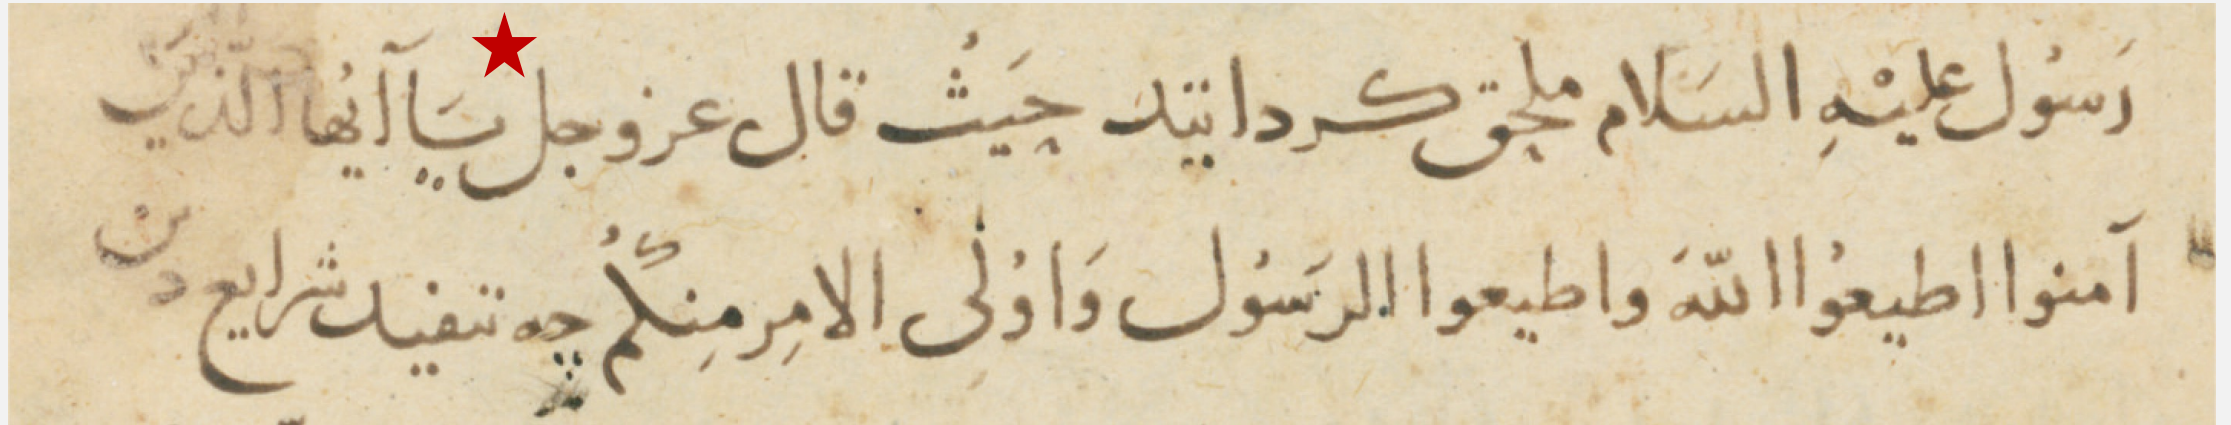 رَسُول عليْهِ السَلام ملحق كردانيد حَيَثُ قال عز و جل يَا آيُها الّذيَن
آمنوا اطيعوُا اللّهَ واطيعوا الرَسُول وَاوُلِى الامِر مِنكُم چه تنفيد شرايع دين